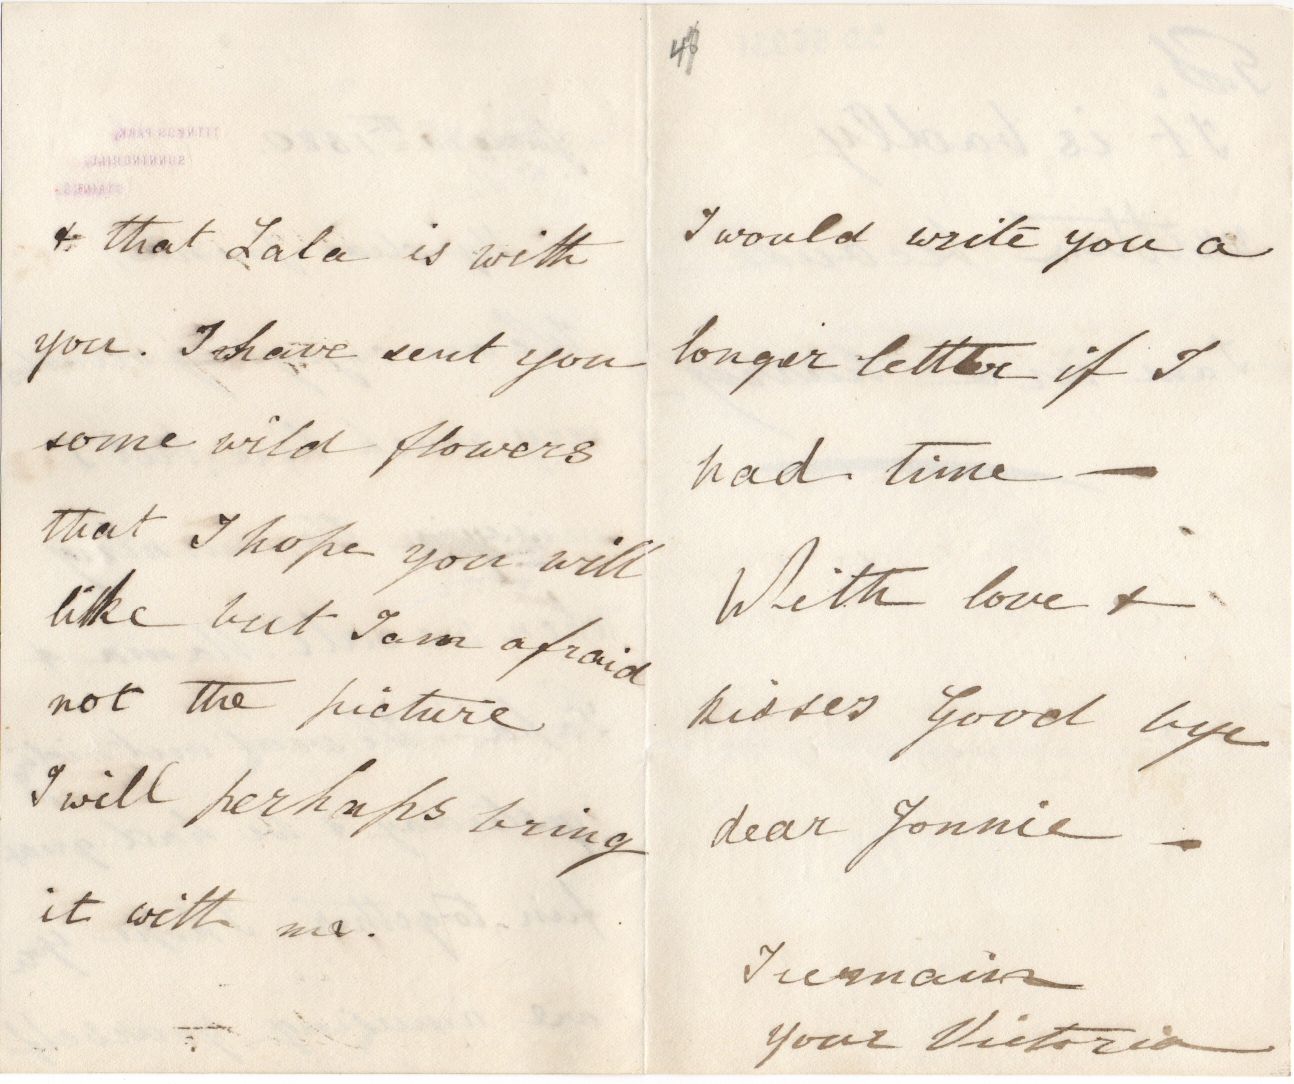 & that Lala is with
you. I have sent you
some wild flowers
that I hope you will
like but I am afraid
not the picture
I will perhaps bring
it with me.
I would write you a
longer letter if I
had time —
With love &
kisses Good bye
dear Jonnie —
I remain
your Victoria